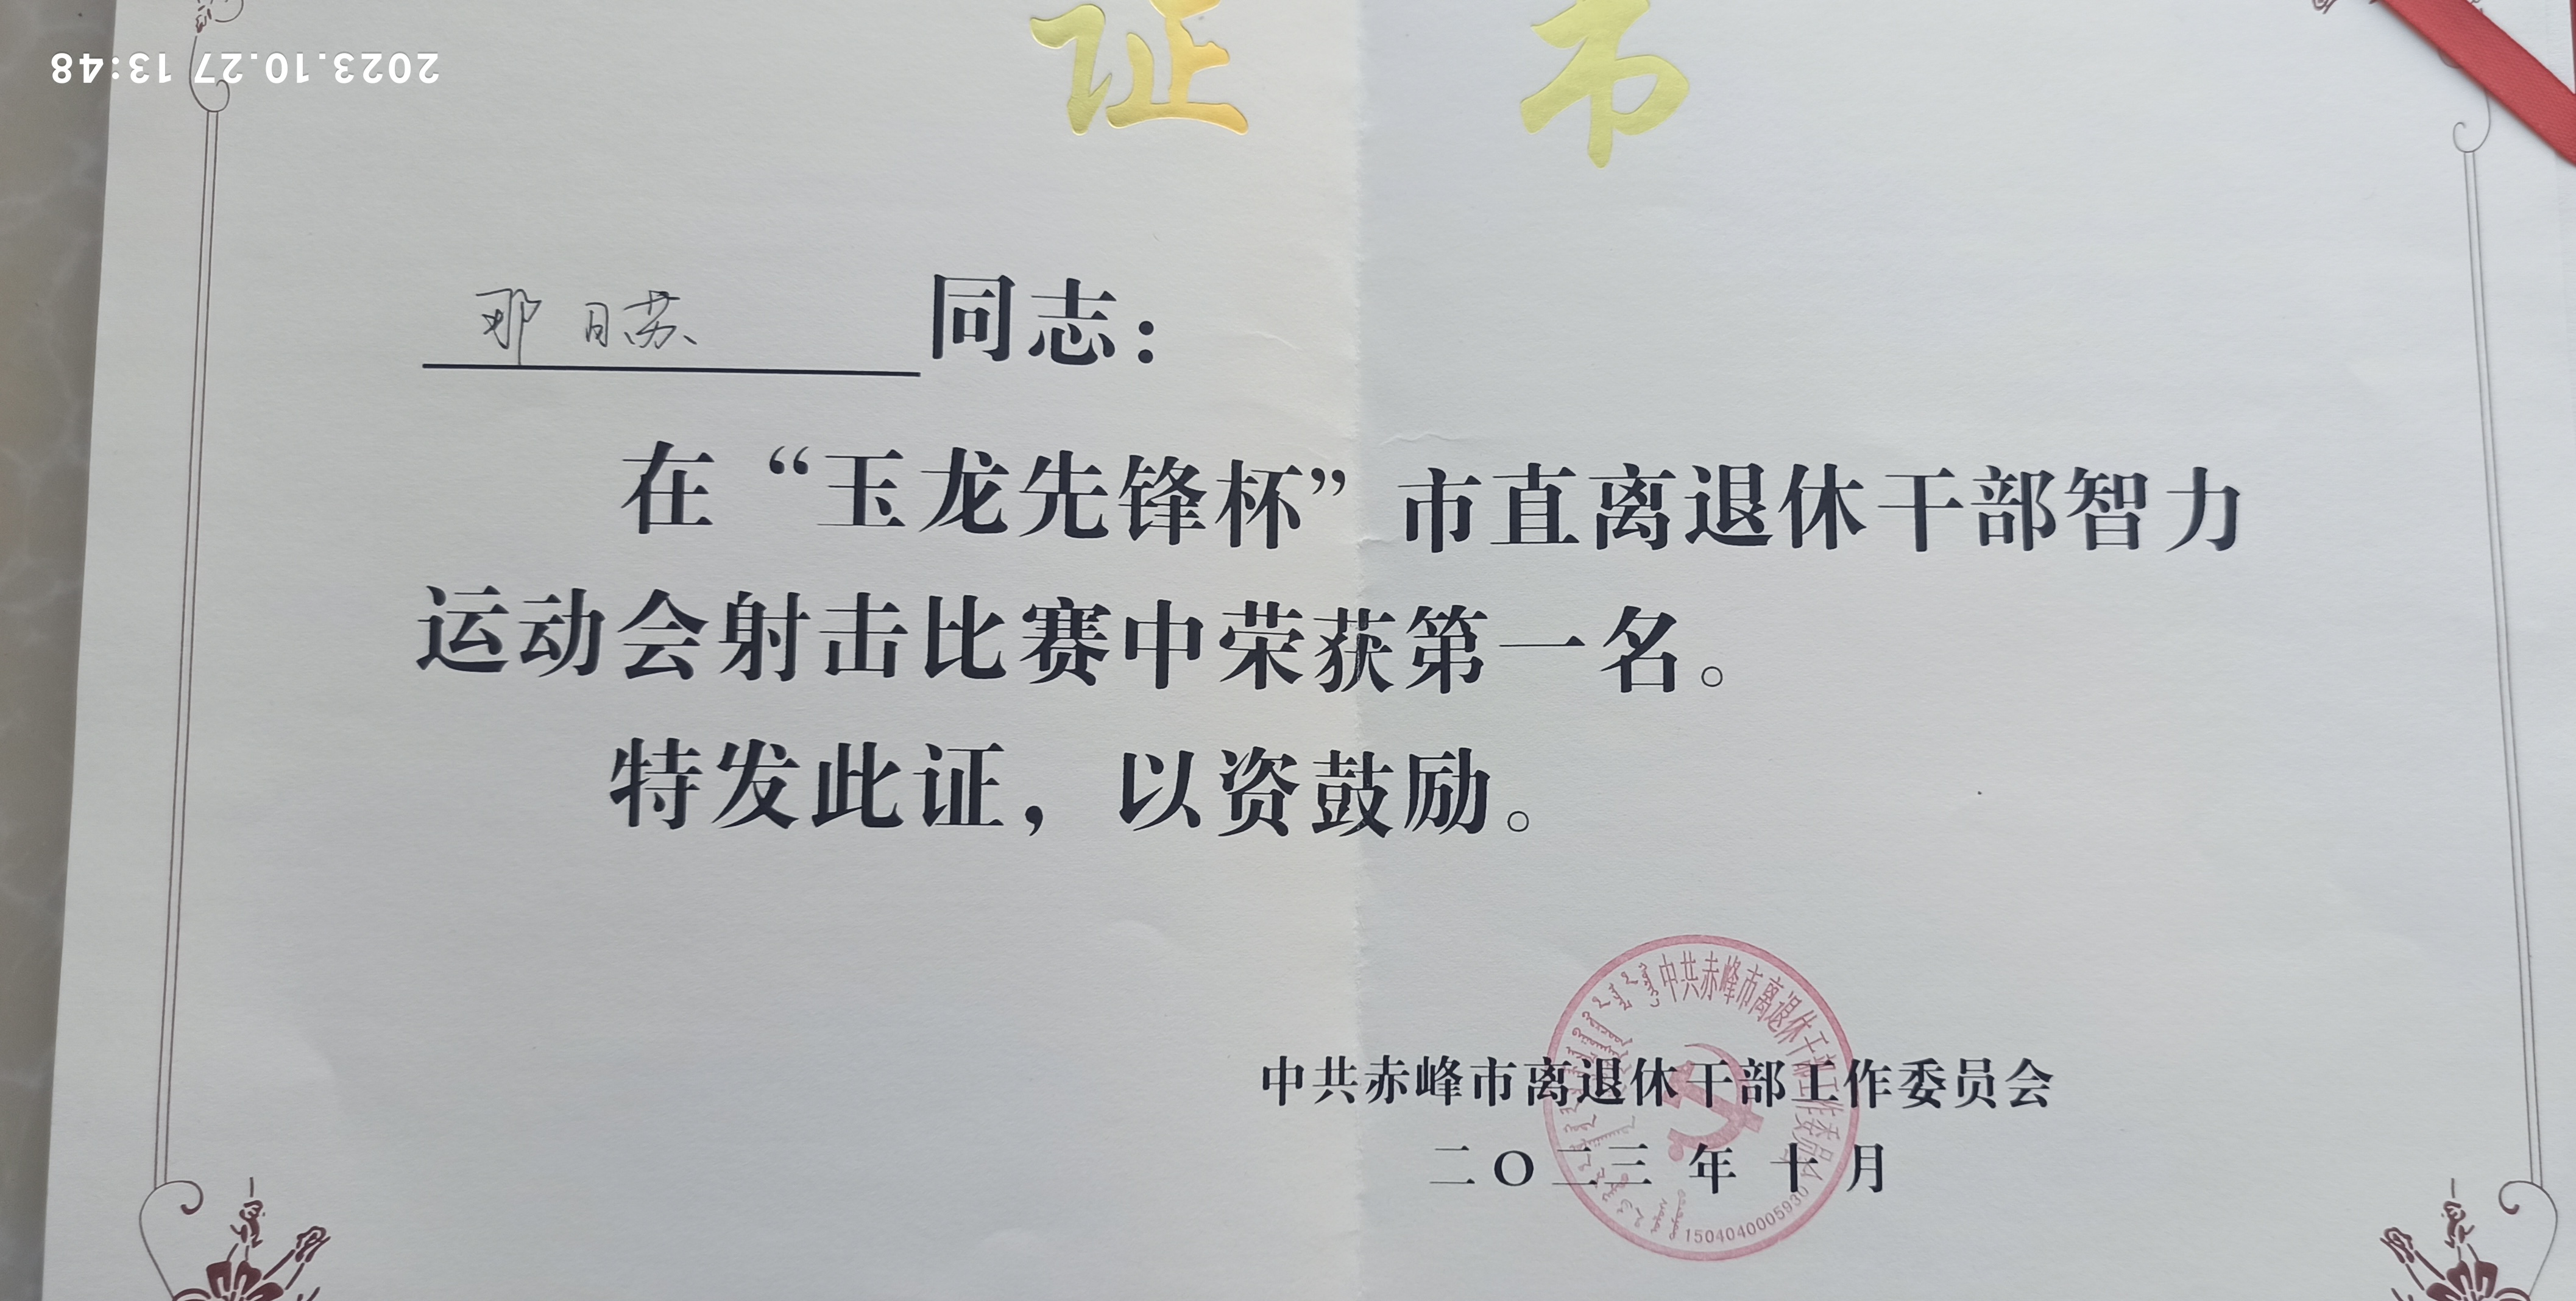 证书
2023.10.27 13:48
那日苏同志：
在“玉龙先锋杯”市直离退休干部智力
运动会射击比赛中荣获第一名。
特发此证，以资鼓励。
中共赤峰市离退休干部工作委员会
中共赤峰市离退休干部工作委员会
二〇二三年十月
1504040005930